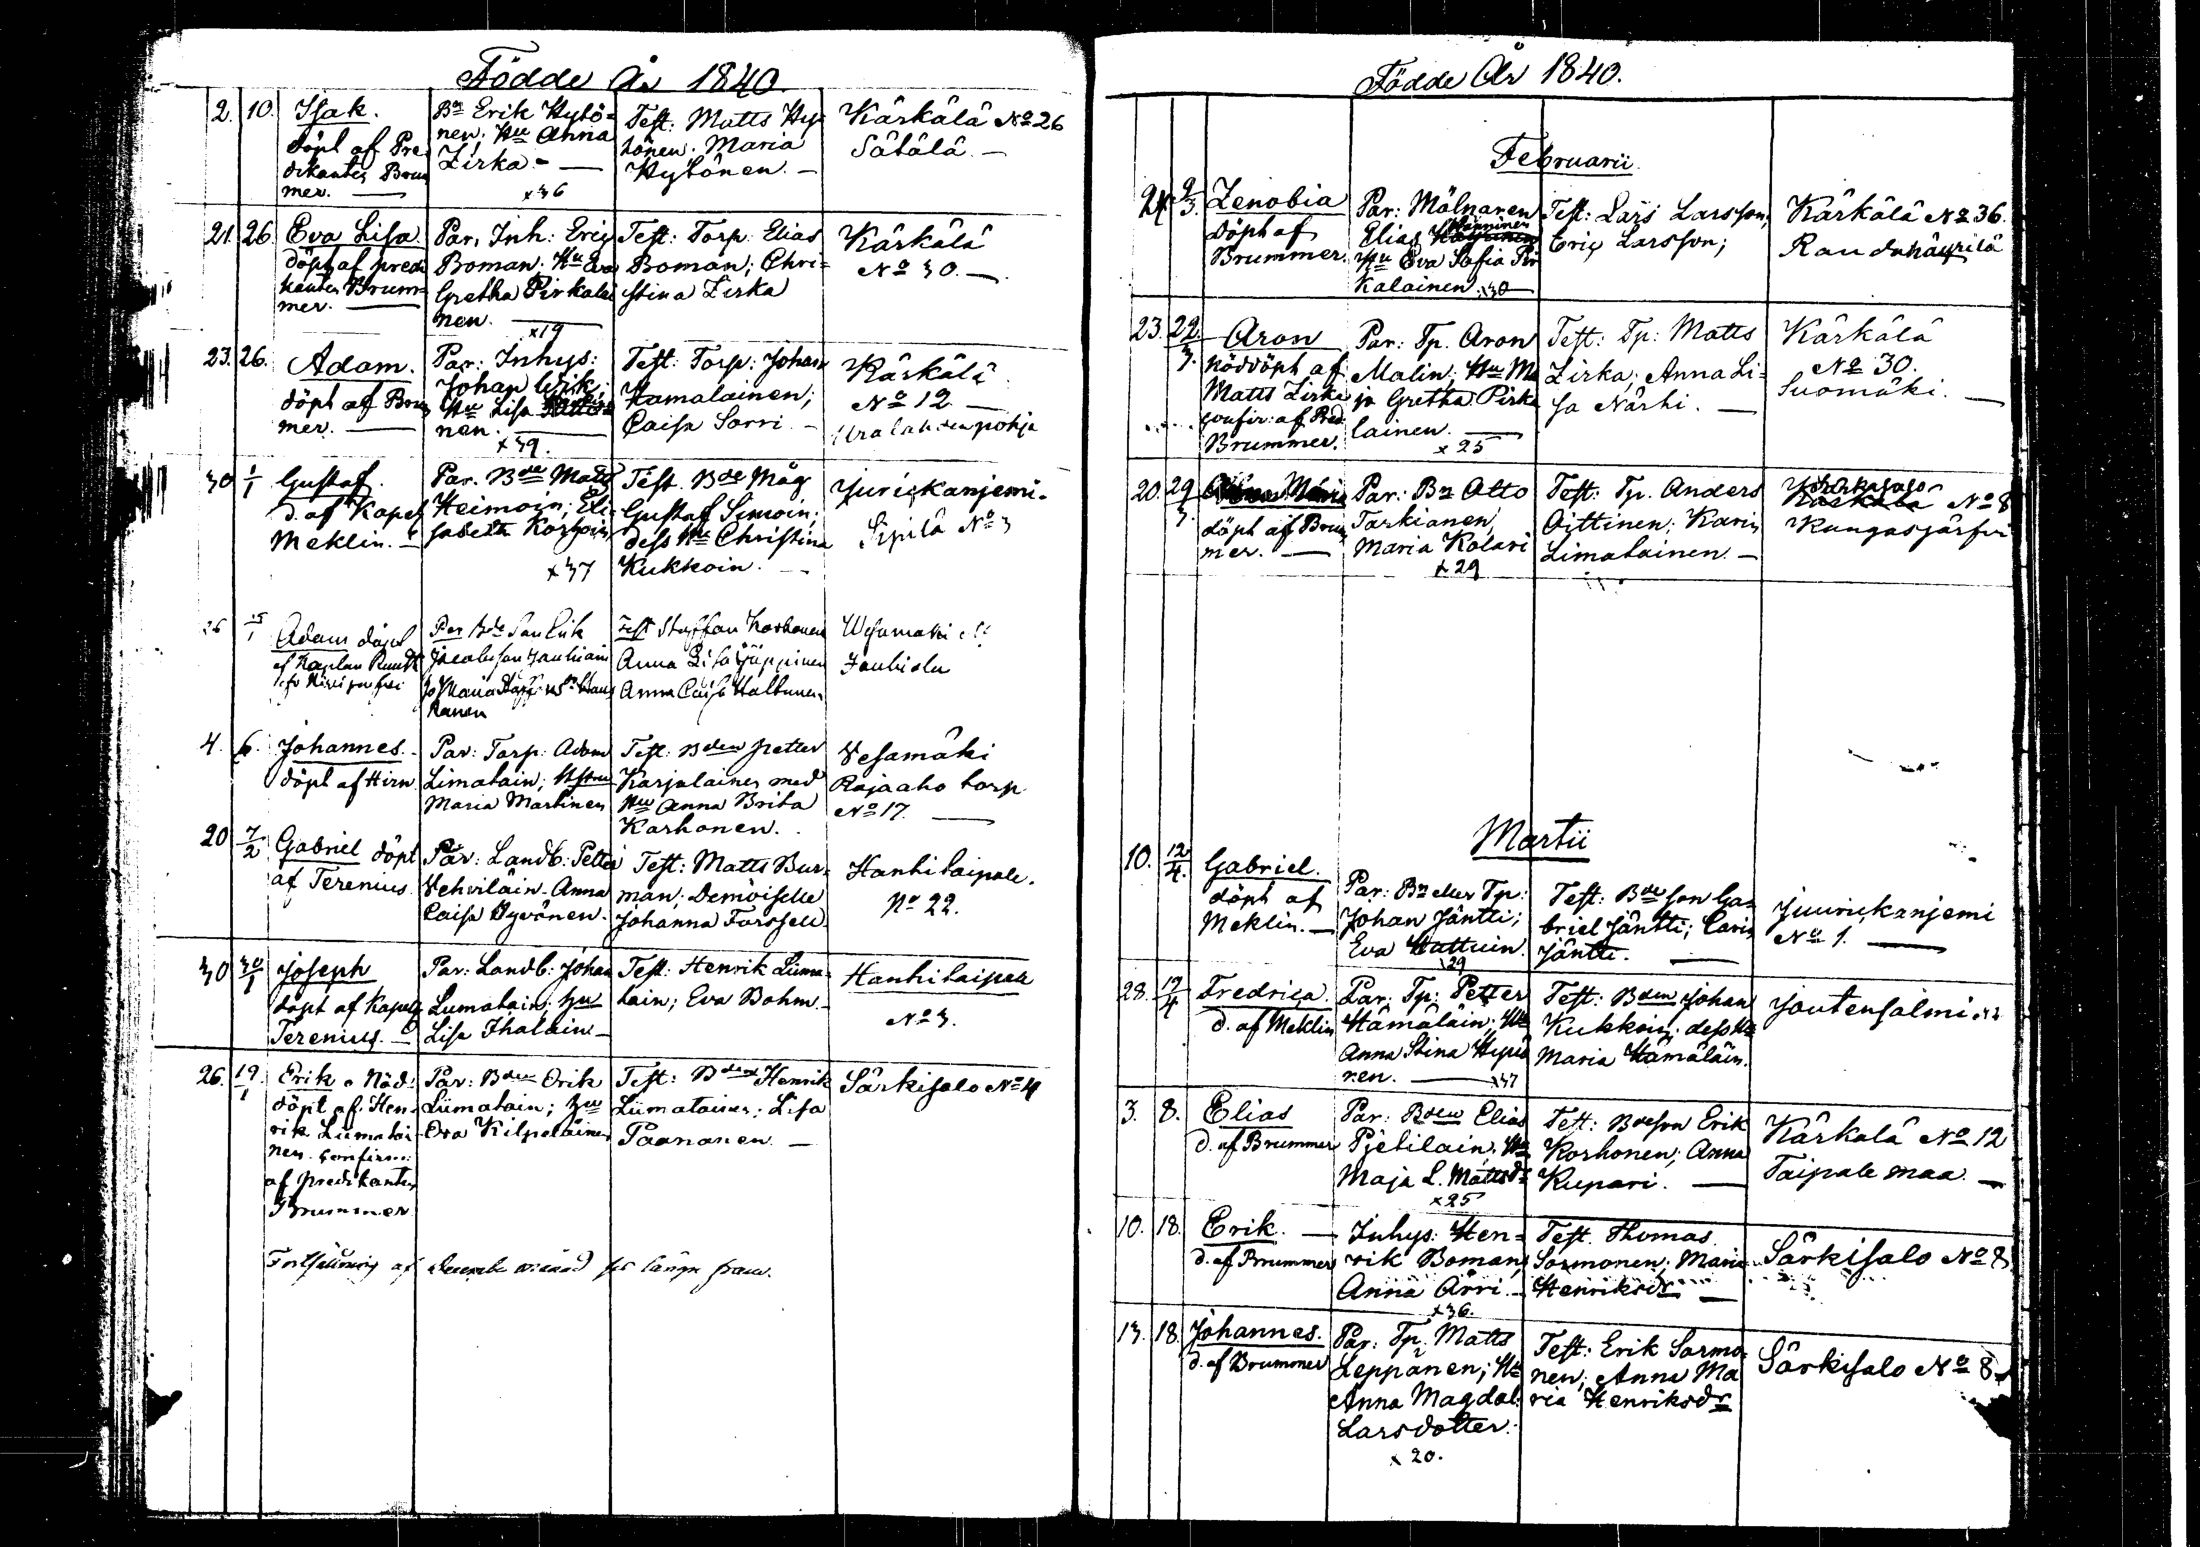 Födde År 1840.
2. 10. Isak.
döpt af Pre
dikanten Brum
mer. —
Bn Erik Hytö=
nen; Hu Anna
Zirka - —
x36
Test: Matts Hy=
tönen. Maria
Hytönen. —
Kärkälä No 26
Sätälä. —
21. 26. Eva Lisa
döpt af predi
kanten Brum=
mer. —
Par. Inh: Eric
Boman. Hu Eva
Gretha Pirkalai
nen. —
x19
Test: Torp: Elias
Boman; Chri=
stina Zirka
Kärkälä
No 30. —
23. 26. Adam.
döpt af Brum
mer. —
Par: Inhys:
Johan Wik;
Hu Lisa
nen. —
x39.
Test: Torp: Johan
Hamalainen;
Caisa Sorri. —
Kärkälä
No 12 —
30 1/1 Gustaf.
d. af Kapel
Meklin. —
Par. Bde Matts
Heimoin; Eli=
sabeta Korhoin
x37
Test. Bde Måg
Gustaf Simoin;
dess Hu Christina
Kukkoin. —
Jurickanjemi.
Sipilä No 3
26 15/1 Adam döpt
af Kaplan
Par Bde Son Erik
Test Staffan Korhonen
Anna Lisa Jäppinen
Anna Caisa Haltunen
Wesamäki
4. 6. Johannes.
döpt af Hirn
Par: Torp: Adam
Limatain;
Maria Martinen
Test: Bden Petter
Karjalainen med
Hu Anna Brita
Korhonen.
Vesamäki
Rajaaho torp
No 17. —
20 7/2 Gabriel döpt
af Terenius.
Par: Landb: Petter
Vehviläin. Anna
Caisa Hyvönen.
Test: Matts Bur=
man; Demoiselle
Johanna Forssell
Hankitaipale.
No 22.
30 30/1 Joseph
döpt af Kapel
Terenius. —
Par: Landb: Johan
Lumatain; hu
Lisa Ihalain —
Test: Henrik Lima=
tain; Eva Bohm —
Hankitaipale
No 3.
26. 19/1 Erik. Nöd:
döpt af Hen=
rik Liimatai
nen. confirm:
af predikanten
Brummer
Par: Bden Erik
Liimatain; hu
Eva Kilpeläinen
Test: Bden Henrik
Liimatainen; Lisa
Paananen. —
Särkisalo No 4
Fortsättning af
Födde År 1840.
Februarii
24. 2/3. Zenobia
döpt af
Brummer.
Par: Mölnaren
Elias Hänninen
Hu Eva Sofia Pir
kalainen. x30
Test: Lars Larsson;
Eric Larsson;
Kärkälä No 36.
23. 22/3. Aron
nöddöpt af
Matts Zirka
confir: af Pred
Brummer.
Par: Tp. Aron
Malin; Hu Ma
ja Gretha Pirka
lainen. —
x 25
Test: Tp: Matts
Zirka; Anna Li=
sa Närhi. —
Kärkälä
No 30.
Suomäki. —
20. 29/3. Maria
döpt af Brum
mer. —
Par: Bn Otto
Tarkianen
Maria Kolari
x 29
Test: Tp. Anders
Oittinen; Karin
Limatainen. —
No 8
Kangasjärfvi
Martii
10. 12/4. Gabriel.
döpt af
Meklin. —
Par: Bn eller Tp:
Johan Jäntti;
Eva Hattuin.
x29
Test: Bdeson Ga=
briel Jäntti; Carin
Jäntti. —
Juurickanjemi
No 1. —
28. 12/4 Fredrica.
d. af Meklin
Par: Tp: Petter
Hämäläin; Hu
Anna Stina Hypö
nen. — x37
Test: Bden Johan
Kukkoin; dess Hu
Maria Hämäläin.
Joutensalmi
3. 8. Elias
d. af Brummer
Par: Bden Elias
Pietiläin. Hu
Maja L. Mattsdr
x25
Test: Bdeson Erik
Korhonen; Anna
Kupari. —
Kärkälä No 12
Taipale maa. —
10. 18. Erik. —
d. af Brummer
Inhys. Hen=
rik Boman;
Anna Orri. —
x36.
Test. Thomas
Sormonen; Maria
Henriksdr —
Särkisalo No 8
13. 18. Johannes.
d. af Brummer
Par: Tp: Matts
Leppänen; Hu
Anna Magdal:
Larsdotter.
x 20.
Test: Erik Sormo=
nen; Anna Ma
ria Henriksdr
Särkisalo No 8